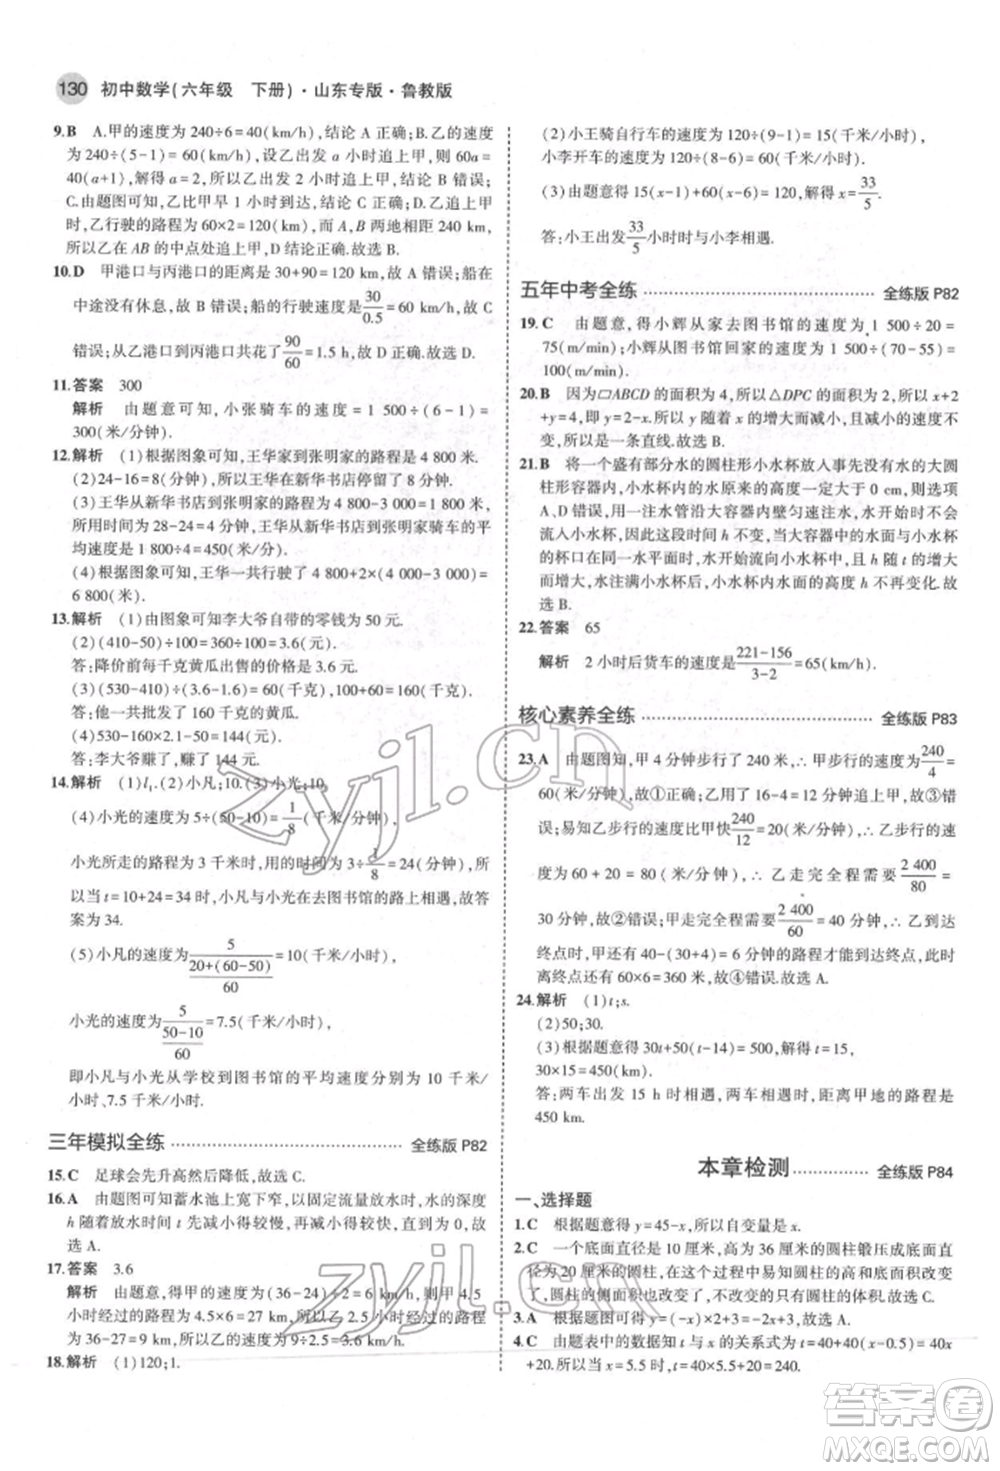 130 初中数学(六年级 下册)·山东专版·鲁教版
9.B A.甲的速度为 240÷6=40(km/h),结论 A 正确;B.乙的速度
为 240÷(5-1)= 60(km/h),设乙出发 a 小时追上甲,则 60a=
40(a+1),解得 a=2,所以乙出发 2 小时后追上甲,结论 B 错误;
C.由题图可知,乙比甲早 1 小时到达,结论 C 正确;D.乙追上甲
时,乙行驶的路程为 60×2=120(km),而 A,B 两地相距 240 km,
所以乙在 AB 的中点处追上甲,D 结论正确.故选 B.
10.D 甲港口与丙港口的距离是 30+90=120 km,故 A 错误;船在
中途没有休息,故 B 错误;船的行驶速度为30/0.5=60 km/h,故 C
错误;从乙港口到达丙港口共花了90/60=1.5 h,故 D 正确.故选 D.
11.答案 300
解析 由题意可知,小张骑车的速度=1 500÷5=
300(米/分钟).
12.解析 (1)根据图象可知,王华家到张明家的路程是 4 800 米.
(2)24-16=8(分钟),王华在新华书店停留了 8 分钟.
(3)王华从新华书店到张明家的路程为 4 800-4 000=800(米),
所用时间为 28-24=4(分钟),王华从新华书店到张明家骑车的平
均速度是 1 800÷4=450(米/分).
(4)根据图象可知,王华一共行驶了 4 800+2×(4 000-3 000)=
6 800(米).
13.解析 (1)由图象可知李大爷自带的零钱为 50 元.
(2)(410-50)÷100=360÷100=3.6(元).
答:降价前每千克黄瓜出售的价格是 3.6 元.
(3)(530-410)÷(3.6-1.6)=60(千克),100+60=160(千克).
答:他一共批发了 160 千克的黄瓜.
(4)530-160×2.1-50=144(元).
答:李大爷赚了,赚了 144 元.
14.解析 (1)l₁.(2)小凡;10.(3)小光;10.
(4)小光的速度为 5÷(50-10)=1/8(千米/分钟),
小光所走的路程为 3 千米时,用的时间为 3÷1/8=24(分钟),所
以当 t=10+24=34时,小凡与小光在去图书馆的路上相遇.故答
案为 34.
(5)小凡的速度为5/((20+(60-50))/60)=10(千米/小时),
小光的速度为5/((50-10)/60)=7.5(千米/小时),
即小凡与小光从学校到图书馆的平均速度分别为 10 千米/小
时、7.5 千米/小时.
三年模拟全练 全练版 P82
15.C 足球会先升高然后降低,故选 C.
16.A 由题图可知蓄水池上宽下窄,以固定流量放水时,水的深度
h 随着放水时间 t 先减小得较慢,再减小得较快,四个选项中,
故选 A.
17.答案 3.6
解析 由题意得甲的速度为(36-24)÷2=6 km/h,则甲 4.5
小时经过的路程为 4.5×6=27 km,所以乙 2.5小时经过的路程
为 36-27=9 km,所以乙的速度为 9÷2.5=3.6 km/h.
18.解析 (1)120;1.
(2)小王骑自行车的速度为 120÷(9-1)= 15(千米/小时),
小李开车的速度为 120÷(8-6)= 60(千米/小时).
(3)由题意得 15(x-1)+60(x-6)=120,解得 x=33/5.
答:小王出发33/5小时时与小李相遇.
五年中考全练 全练版 P82
19.C 由题意,得小辉从家去图书馆的速度为 1 500÷20=
75(m/min);小辉从图书馆回家的速度为 1 500÷(70-55)=
100(m/min).故选 C.
20.B 因为▱ABCD 的面积为 4,所以△DPC 的面积为 2,所以x+2
+y=4,即 y=2-x.所以 y 随着 x 的增大而减小,且减小的速度不
变,所以是一条直线.故选 B.
21.B 将一个盛有部分水的圆柱形小水杯放入事先没有水的大圆
柱形容器内,小水杯内的水原来的高度一定大于 0 cm,则可以判断
A、D 错误,用一注水管沿大容器内壁匀速注水,即开始时水不会
流入小水杯,因此这段时间 h 不变,当大容器中的水面与小水杯
的杯口在同一水平面时,水开始流向小水杯内,h 随 t 的增大而
增大,当水注满小水杯后,小水杯内水面的高度 h 不再变化.故
选 B.
22.答案 65
解析 2 小时后货车的速度是(221-156)/(3-2)=65(km/h).
核心素养全练 全练版 P83
23.A 由题图知,甲 4 分钟步行了 240 米,∴甲步行的速度为240/4
=60(米/分),故①正确;乙用了 16-4=12 分钟追上甲,故③错
误;易知乙步行的速度比甲快240/12=20(米/分),∴乙的速度为
60+20=80(米/分),∴乙走完全程用的时间为2 400/80=
30分钟,故②错误;甲走完全程需要2 400/60=40 分钟,∴乙到达
终点时,甲用了 4+30=34 分钟,甲还有 40-(30+4)=6分钟的路程才能到达终点,
离终点还有 60×6=360 米,故④错误.故选 A.
24.解析 (1)t;s.
(2)50;30.
(3)根据题意得 30t+50(t-14)=500,解得 t=15,
30×15=450(km).
答:两车出发 15 h 时相遇,两车相遇时,距离甲地的路程是
450 km.
本章检测 全练版 P84
一、选择题
1.C 根据题意得 y=45-x,所以自变量是 x.
2.C 一个底面直径是 10 厘米,高为 36 厘米的圆柱锻压成底面直
径为 20 厘米的圆柱,在这个过程中,圆柱的底面面积改变
了,圆柱的侧面积改变了,不改变的是圆柱的体积.故选 C.
3.A
4.C 由题表中的数据知 t 与 x 的关系式为 t=40+20(x-1)=40x
+20.所以当 x=5.5 时,t=40×5.5+20=240.
zyjl.cn
zyjl.cn
答案圈
MXQE.COM